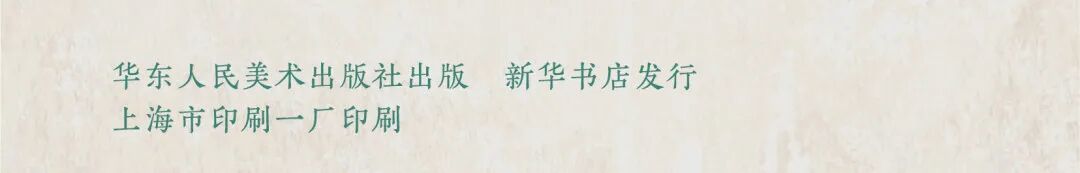 华东人民美术出版社出版　新华书店发行
上海市印刷一厂印刷